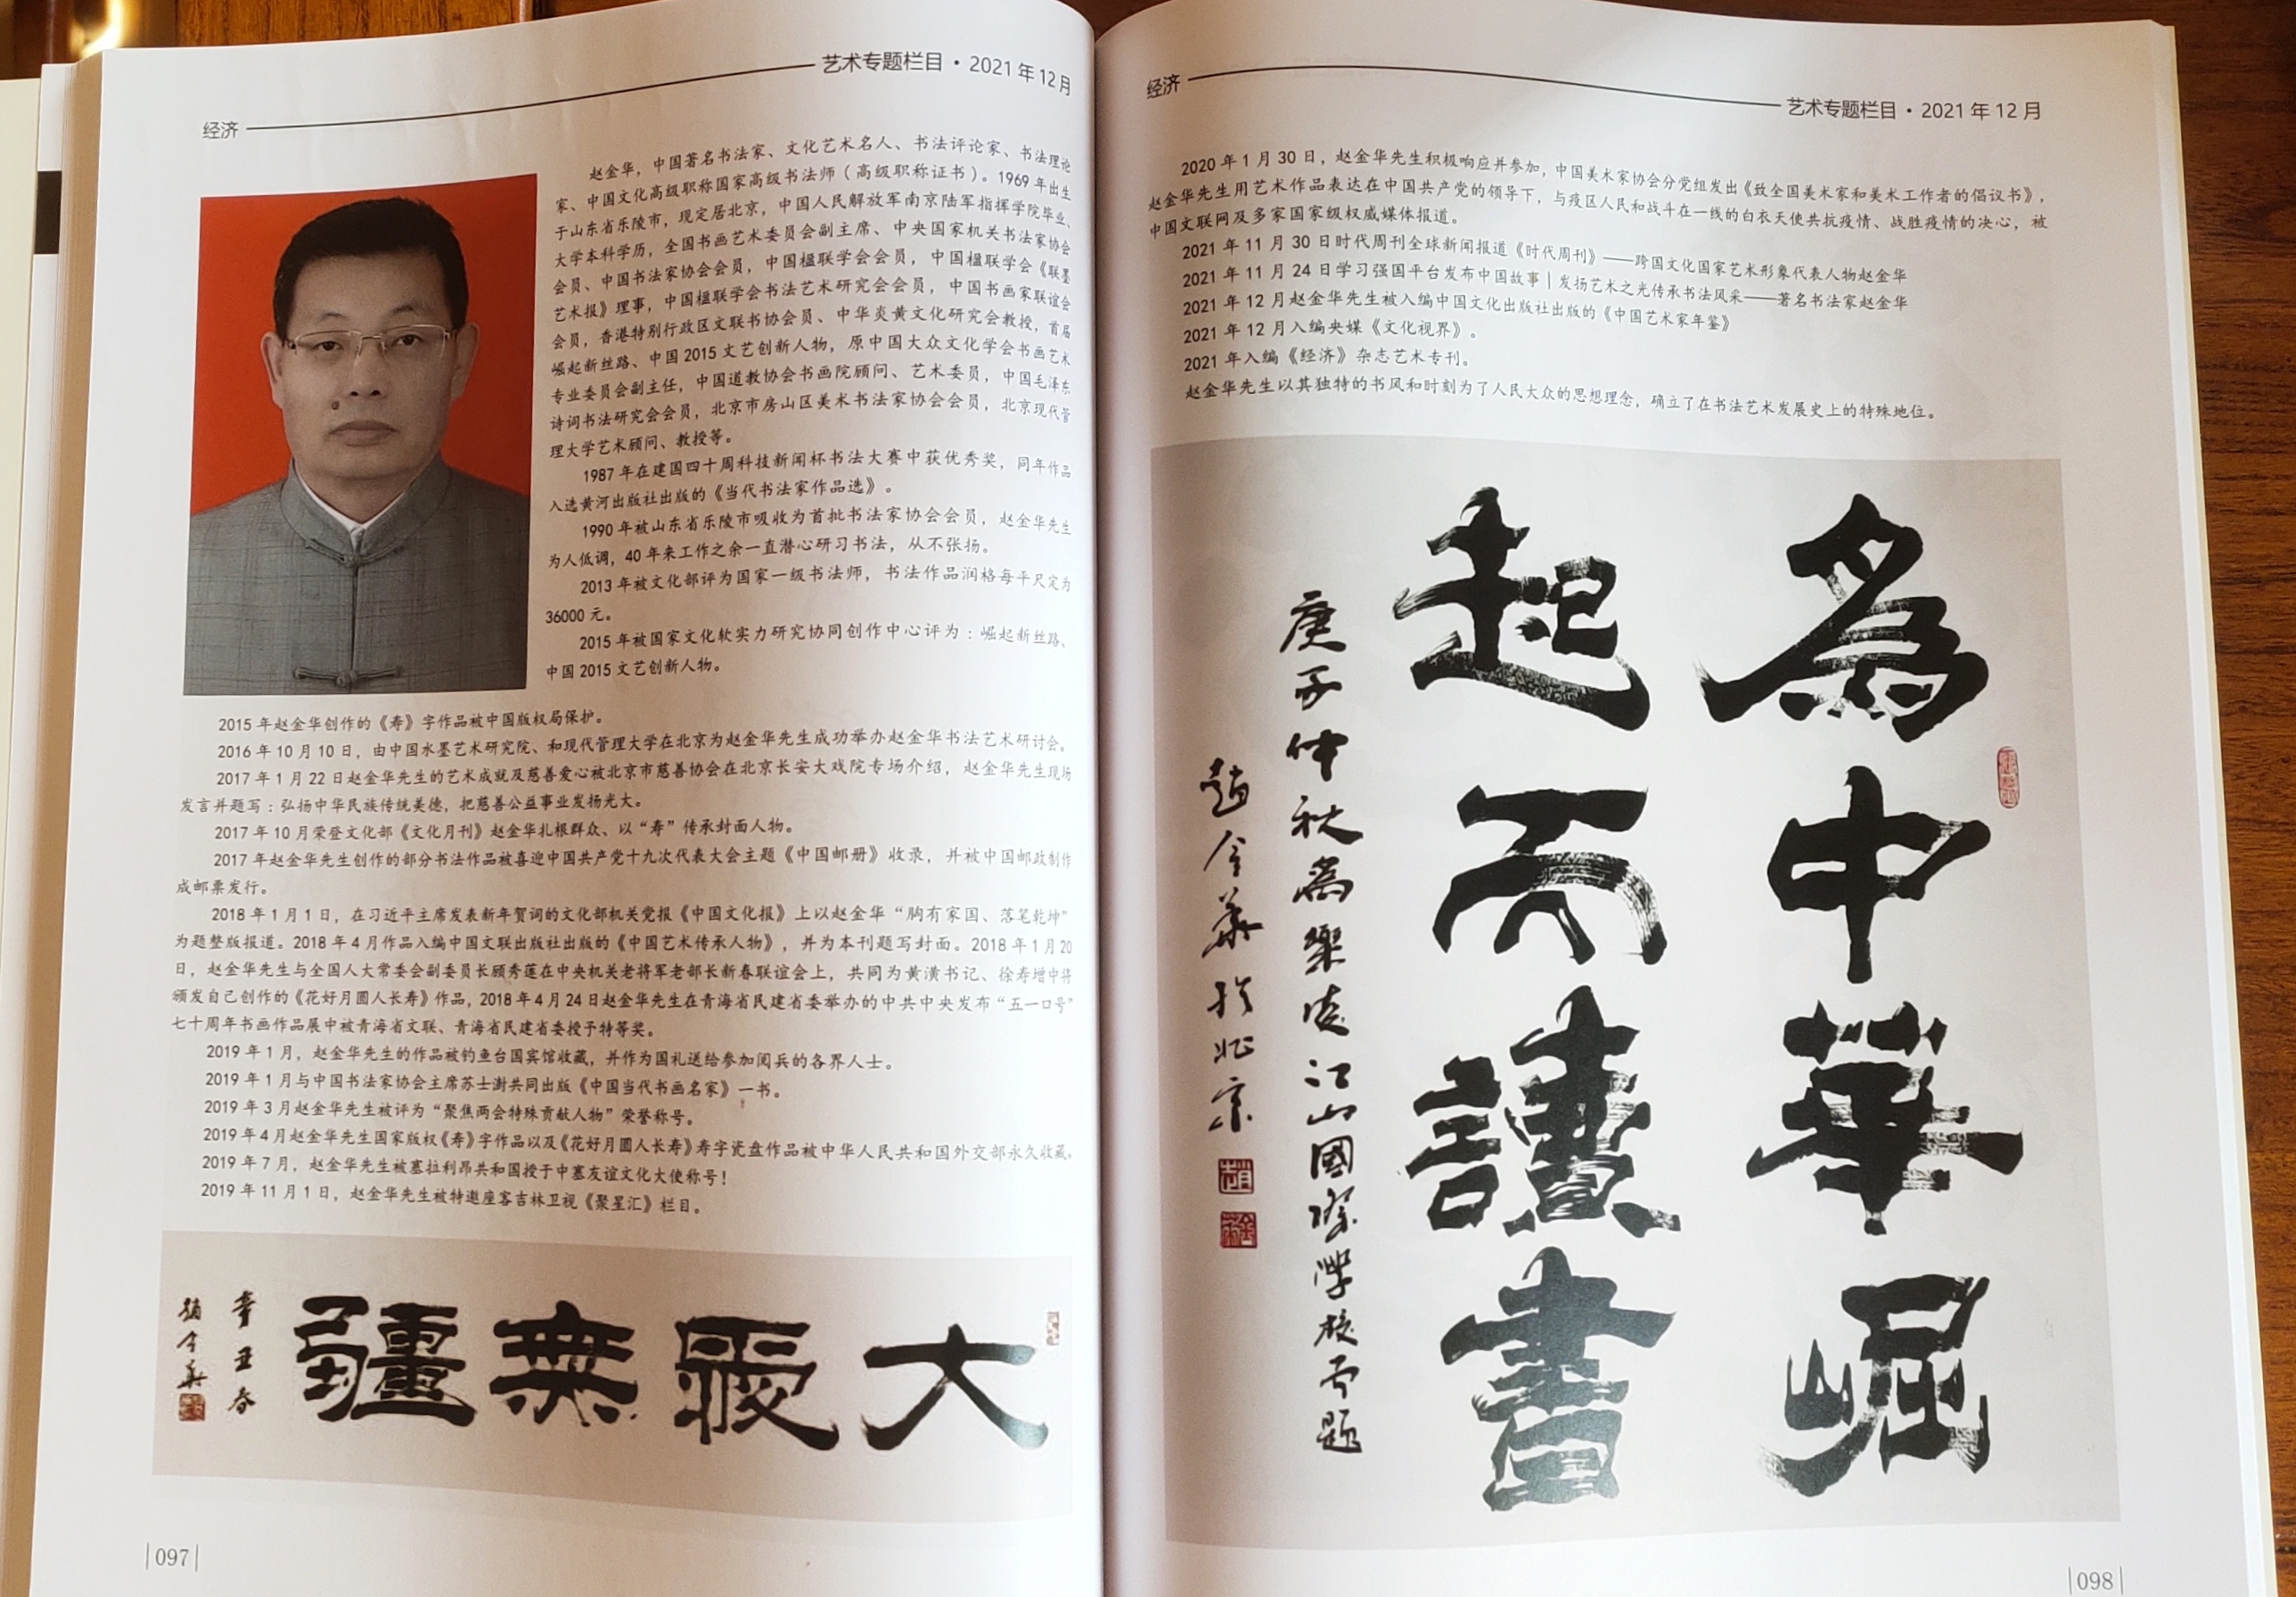 艺术专题栏目·2021年12月
经济
赵金华，中国著名书法家、文化艺术名人、书法评论家、书法理论
家、中国文化高级职称国家高级书法师（高级职称证书）。1969年出生
于山东省乐陵市，现定居北京，中国人民解放军南京陆军指挥学院毕业、
大学本科学历，全国书画艺术委员会副主席、中央国家机关书法家协会
会员、中国书法家协会会员，中国楹联学会会员，中国楹联学会《联墨
艺术报》理事，中国楹联学会书法艺术研究会会员，中国书画家联谊会
会员，香港特别行政区文联书协会员、中华炎黄文化研究会教授，首届
崛起新丝路、中国2015文艺创新人物，原中国大众文化学会书画艺术
专业委员会副主任，中国道教协会书画院顾问、艺术委员，中国毛泽东
诗词书法研究会会员，北京市房山区美术书法家协会会员，北京现代管
理大学艺术顾问、教授等。
1987年在建国四十周科技新闻杯书法大赛中获优秀奖，同年作品
入选黄河出版社出版的《当代书法家作品选》。
1990年被山东省乐陵市吸收为首批书法家协会会员，赵金华先生
为人低调，40年来工作之余一直潜心研习书法，从不张扬。
2013年被文化部评为国家一级书法师，书法作品润格每平尺定为
36000元。
2015年被国家文化软实力研究协同创作中心评为：崛起新丝路、
中国2015文艺创新人物。
2015年赵金华创作的《寿》字作品被中国版权局保护。
2016年10月10日，由中国水墨艺术研究院、和现代管理大学在北京为赵金华先生成功举办赵金华书法艺术研讨会。
2017年1月22日赵金华先生的艺术成就及慈善爱心被北京市慈善协会在北京长安大戏院专场介绍，赵金华先生现场
发言并题写：弘扬中华民族传统美德，把慈善公益事业发扬光大。
2017年10月荣登文化部《文化月刊》赵金华扎根群众、以“寿”传承封面人物。
2017年赵金华先生创作的部分书法作品被喜迎中国共产党十九次代表大会主题《中国邮册》收录，并被中国邮政制作
成邮票发行。
2018年1月1日，在习近平主席发表新年贺词的文化部机关党报《中国文化报》上以赵金华“胸有家国、落笔乾坤”
为题整版报道。2018年4月作品入编中国文联出版社出版的《中国艺术传承人物》，并为本刊题写封面。2018年1月20
日，赵金华先生与全国人大常委会副委员长顾秀莲在中央机关老将军老部长新春联谊会上，共同为黄潢书记、徐寿增中将
颁发自己创作的《花好月圆人长寿》作品，2018年4月24日赵金华先生在青海省民建省委举办的中共中央发布“五一口号”
七十周年书画作品展中被青海省文联、青海省民建省委授予特等奖。
2019年1月，赵金华先生的作品被钓鱼台国宾馆收藏，并作为国礼送给参加阅兵的各界人士。
2019年1月与中国书法家协会主席苏士澍共同出版《中国当代书画名家》一书。
2019年3月赵金华先生被评为“聚焦两会特殊贡献人物”荣誉称号。
2019年4月赵金华先生国家版权《寿》字作品以及《花好月圆人长寿》寿字瓷盘作品被中华人民共和国外交部永久收藏。
2019年7月，赵金华先生被塞拉利昂共和国授于中塞友谊文化大使称号！
2019年11月1日，赵金华先生被特邀座客吉林卫视《聚星汇》栏目。
大爱無疆
辛丑春
趙金華
|097|
经济
艺术专题栏目·2021年12月
2020年1月30日，赵金华先生积极响应并参加，中国美术家协会分党组发出《致全国美术家和美术工作者的倡议书》，
赵金华先生用艺术作品表达在中国共产党的领导下，与疫区人民和战斗在一线的白衣天使共抗疫情、战胜疫情的决心，被
中国文联网及多家国家级权威媒体报道。
2021年11月30日时代周刊全球新闻报道《时代周刊》——跨国文化国家艺术形象代表人物赵金华
2021年11月24日学习强国平台发布中国故事｜发扬艺术之光传承书法风采——著名书法家赵金华
2021年12月赵金华先生被入编中国文化出版社出版的《中国艺术家年鉴》
2021年12月入编央媒《文化视界》。
2021年入编《经济》杂志艺术专刊。
赵金华先生以其独特的书风和时刻为了人民大众的思想理念，确立了在书法艺术发展史上的特殊地位。
為中華崛
起而讀書
庚子仲秋為樂陵江山國際學校而題
趙金華於北京
|098|